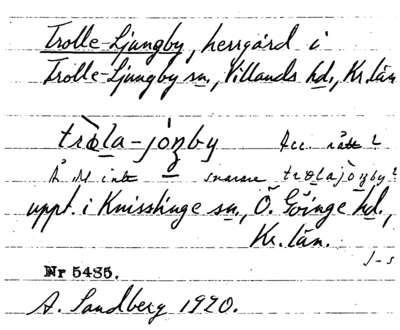 Trolle-Ljungby, herrgård i
Trolle-Ljungby sn, Villands hd, Kr. län
trò̱la-jóŋby Acc. rätt?
Är ej inte snarare trolajòŋby?
uppt. i Knisslinge sn, Ö. Göinge hd.,
Kr. län.
J-s
Nr 5485.
A. Sandberg 1920.